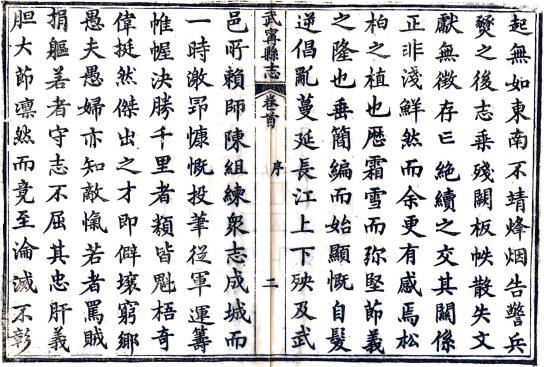 起無如東南不靖烽烟告警兵
燹之後志乘殘闕板帙散失文
獻無徵存亡絕續之交其關係
正非淺鮮然而余更有感焉松
柏之植也歴霜雪而弥堅節義
之隆也垂簡編而始顯慨自髮
逆倡亂蔓延長江上下殃及武
武寧縣志 卷首 序 二
邑所賴師陳組練衆志成城而
一時激昻慷慨投筆從軍運籌
帷幄決勝千里者類皆魁梧奇
偉挺然傑出之才即僻壤窮鄉
愚夫愚婦亦知敵愾若者罵賊
捐軀若者守志不屈其忠肝義
胆大節凛然而竟至淪滅不彰